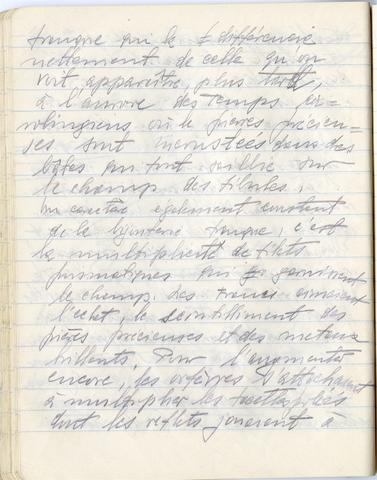 franque qui la différencie
nettement de celle qu'on
voit apparaître plus tard,
à l'aurore des temps ca-
rolingiens où les pierres précieu-
ses sont incrustées dans des
bâtes qui font saillie sur
le champ des fibules.
Un caractère également constant
de la bijouterie franque, c'est
la multiplicité de filets
prismatiques qui garnissent
le champ. Les Francs aimaient
l'éclat, le scintillement des
pierres précieuses et des métaux
brillants. Pour l'augmenter
encore, les orfèvres s'attachaient
à multiplier les facettes
dont les reflets jouaient à